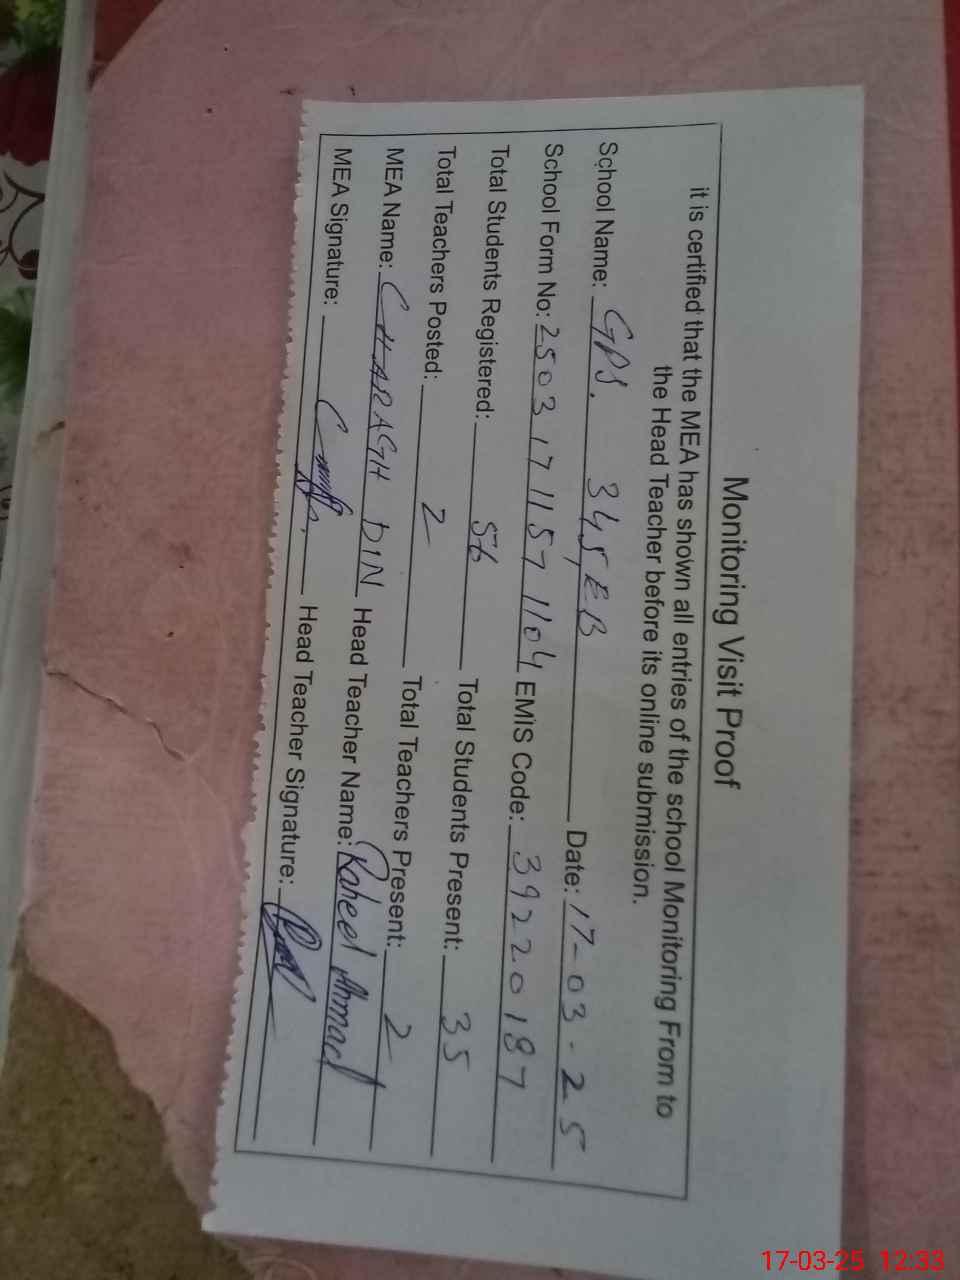 Monitoring Visit Proof
it is certified that the MEA has shown all entries of the school Monitoring From to
the Head Teacher before its online submission.
School Name: GPS. 345 EB Date: 17-03-25
School Form No: 2503171157 1104 EMIS Code: 39220187
Total Students Registered: 56 Total Students Present: 35
Total Teachers Posted: 2 Total Teachers Present: 2
MEA Name: CHARAGH DIN Head Teacher Name: Raheel Ahmad
MEA Signature: Head Teacher Signature:
17-03-25 12:33